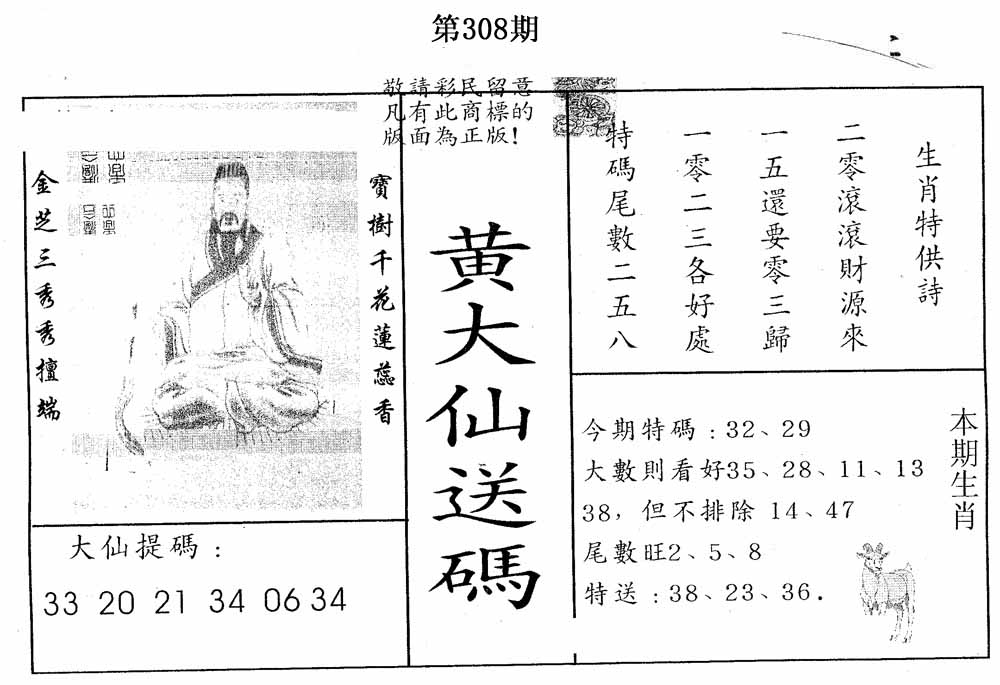 第308期
敬請彩民留意
凡有此商標的
版面為正版!
金芝三秀秀擅端
寶樹千花蓮蕊香
黄大仙送碼
生肖特供詩
二零滾滾財源來
一五還要零三歸
一零二三各好處
特碼尾數二五八
大仙提碼:
33 20 21 34 06 34
本期生肖
今期特碼:32、29
大數則看好35、28、11、13
38，但不排除 14、47
尾數旺2、5、8
特送:38、23、36.